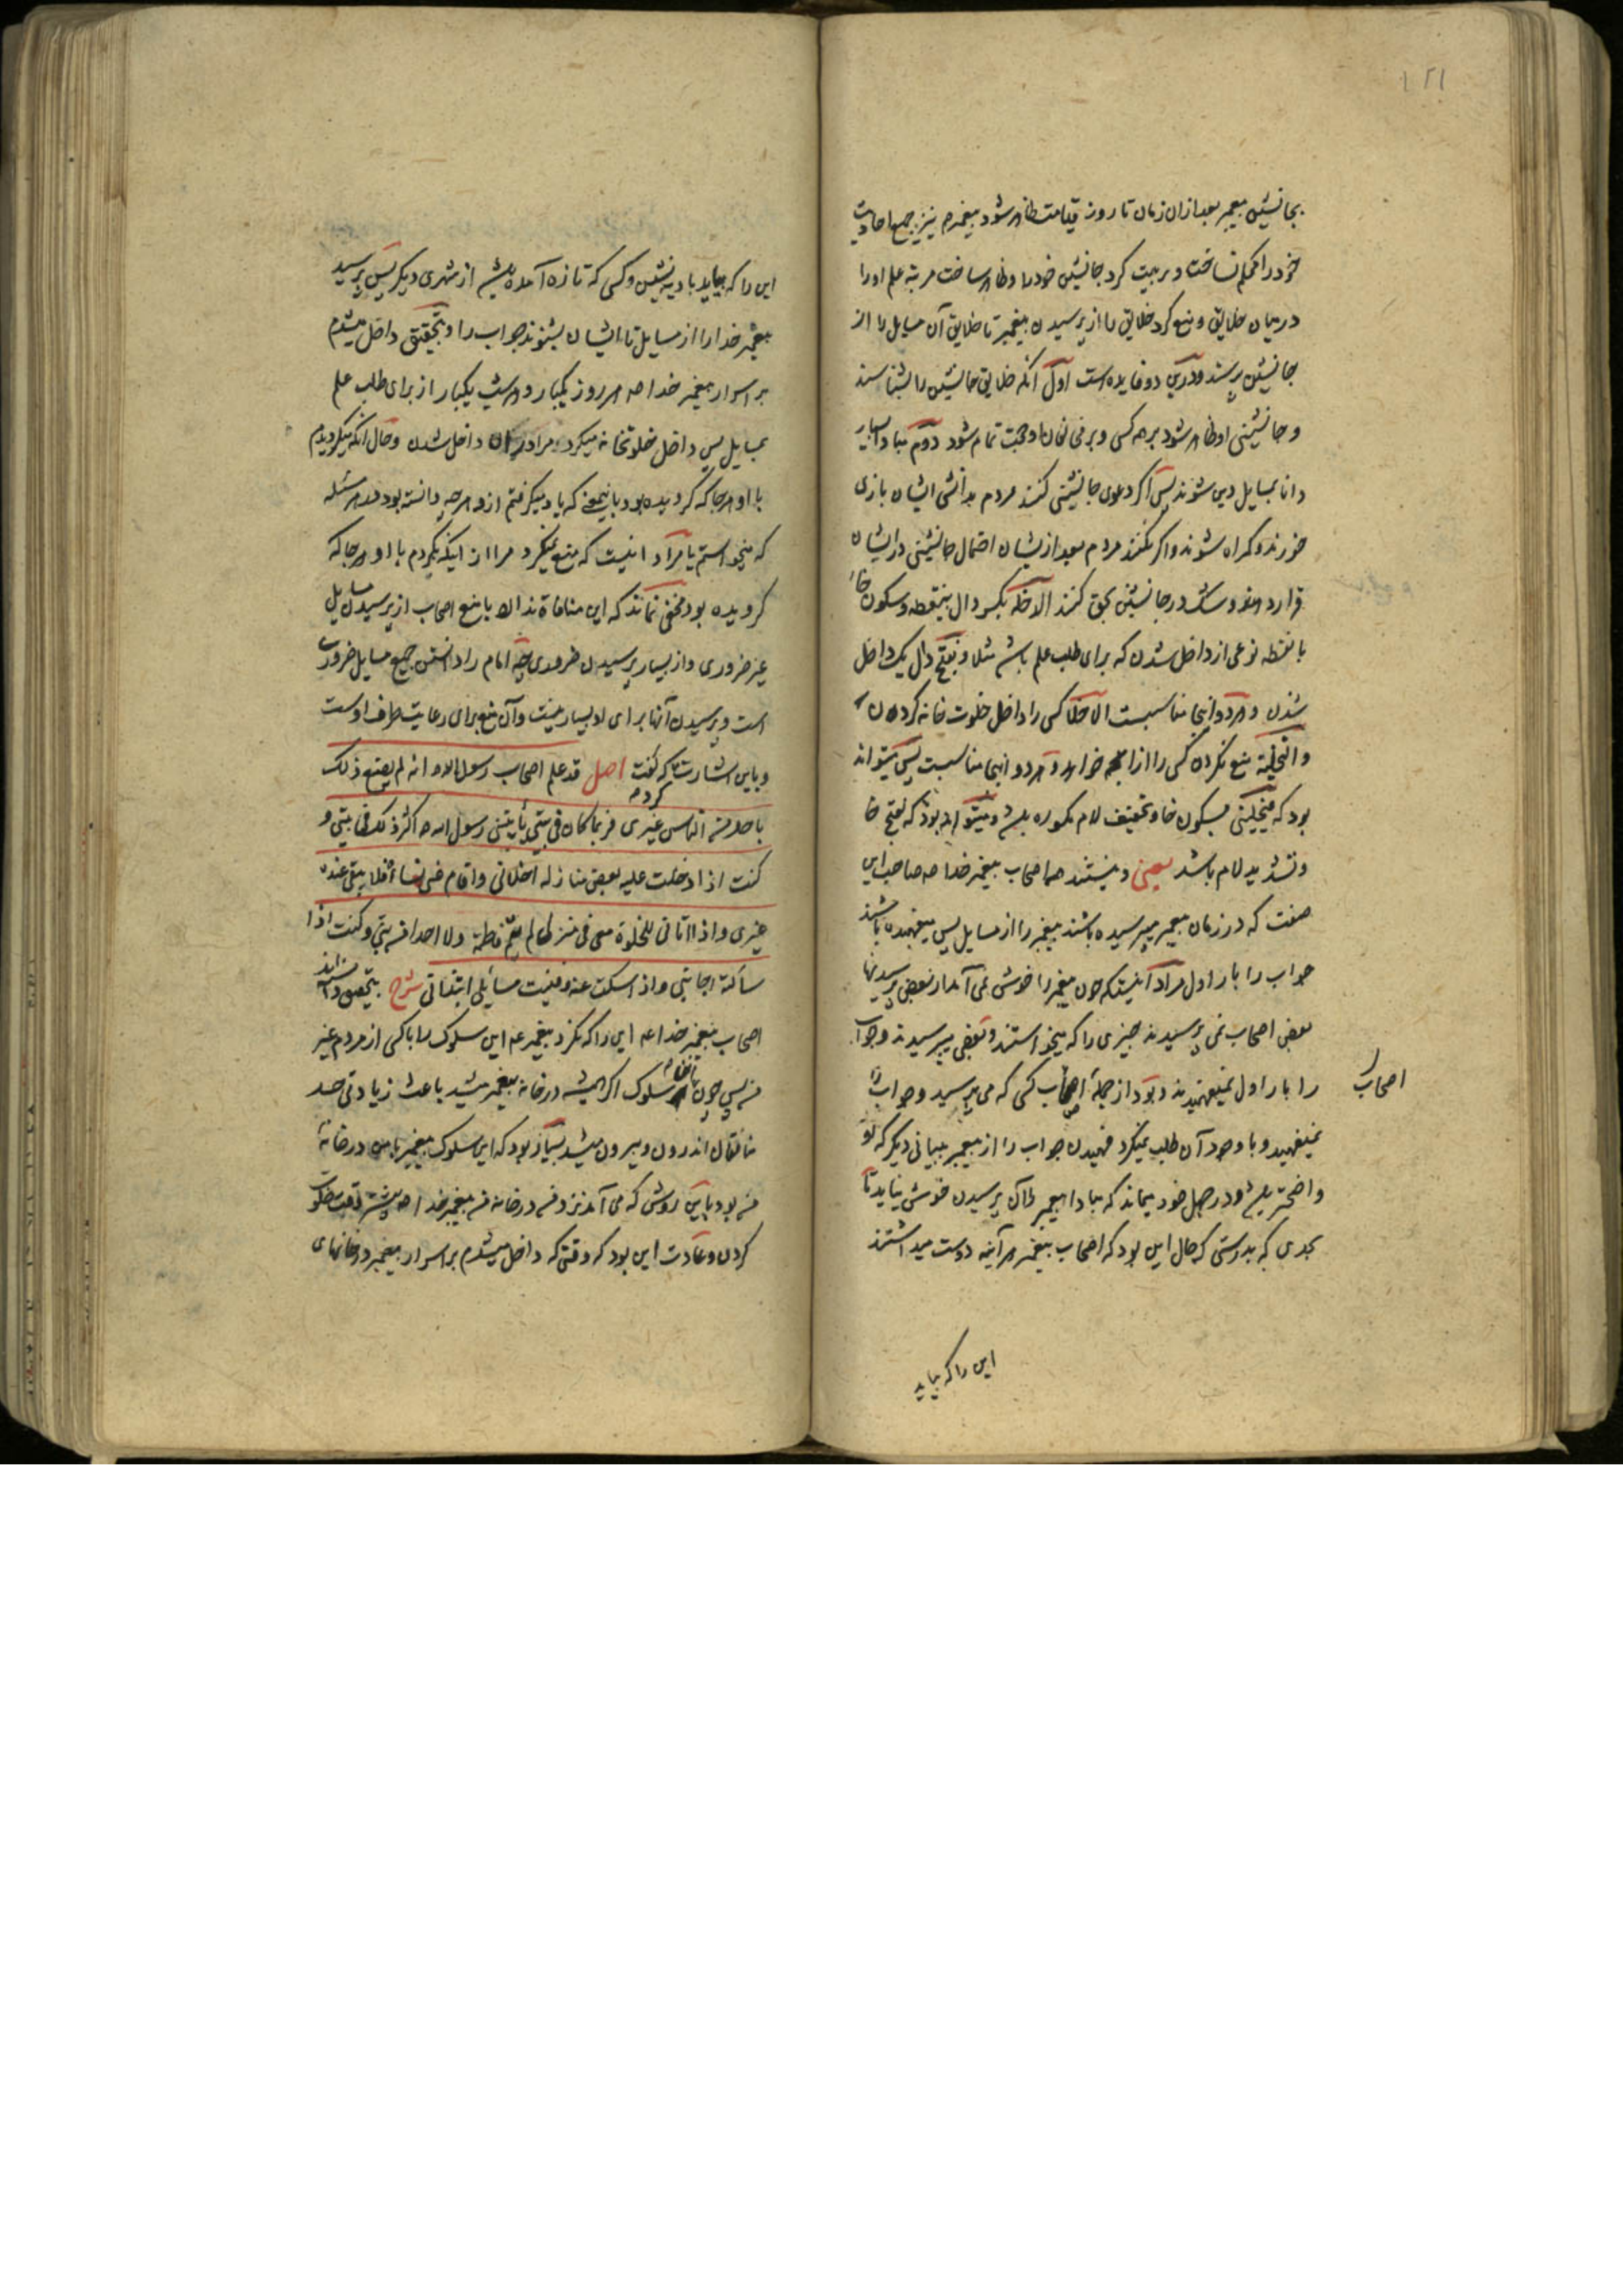 ۱۲۱
بجانشین پیغمبر بعد ازان زمان تا روز قیامت ظاهر شود پیغمبرم نیز جمیع احادیث
خود را محکم نساخت و تربیت کرد جانشین خود را و ظاهر ساخت مرتبه علم او را
درمیان خلایق و منع کرد خلایق را از پرسیدن پیغمبر تا خلایق آن مسایل را از
جانشین پرسند و درین دو فایده است اول آنکه خلایق جانشین را بشناسند
و جانشینی او ظاهر شود بر هر کسی و بر مخالفان او حجت تمام شود دوم مبادا بسیار
دانا بمسایل دین شوند پس اگر دعوی جانشینی کنند مردم بدانش ایشان بازی
خورند و گمراه شوند و اگر نکنند مردم بعد ازیشان احتمال جانشینی در ایشان
قرار دهند و شک در جانشین بحق کنند الدخلة بکسر دال بینقطه و سکون خاء
با نقطه نوعی از داخل شدن که برای طلب علم باشد مثلا و بفتح دال یک داخل
شدن و هر دو اینجا مناسبست الاخلا کسی را داخل خلوت خانه کردن
و التخلیة منع نکردن کسی را از آنچه خواهد و هر دو اینجا مناسبست پس میتواند
بود که فیخلینی بسکون خا و تخفیف لام مکسوره باشد و میتواند بود که بفتح خا
و تشدید لام باشد یعنی و نیستند همه اصحاب پیغمبر خدا صه صاحب این
صفت که در زمان پیغمبر میپرسیده باشند پیغمبر را از مسایل پس میفهمیده باشند
جواب را بار اول مراد آنیست که چون پیغمبر را خوش نمی آمد از بعضی پرسیدنها
بعضی اصحاب نمی پرسیدند چیزی را که میخواستند و بعضی میپرسیدند و جواب
را بار اول نمیفهمیدند و بود از جمله اصحاب کسی که می پرسید و جواب را
اصحاب
نمیفهمید و با وجود آن طلب نمیکرد فهمیدن جواب را از پیغمبر ببیانی دیگر که او
واضحتر باشد و در جهل خود میماند که مبادا پیغمبر را آن پرسیدن خوش نیاید تا
بحدی که بدرستی که حال این بود که اصحاب پیغمبر هر آینه دوست میداشتند
این را که بیاید
این را که بیاید بادیه نشین و کسی که تازه آمده باشد از شهری دیگر پس پرسید
پیغمبر خدا را از مسایل تا ایشان بشنوند جواب را و بتحقیق داخل میشدم
بر اسرار پیغمبر خدا صه هر روز یکبار و هر شب یکبار از برای طلب علم
بمسایل پس داخل خلوتخانه میکرد مرا در آن داخل شدن و حال آنکه میگردیدم
با او هر جا که گردیده بود باینمعنی که یاد میگرفتم ازو هر چه دانسته بود در هر مسئله
که میخواستم یا مراد اینست که منع نمیکرد مرا از اینکه بگردم با او هر جا که
گردیده بود مخفی نماند که این منافاة ندارد با منع اصحاب از پرسیدن مسایل
غیر ضروری و از بسیار پرسیدن ضروری چه امام را دانستن جمیع مسایل ضرور
است و پرسیدن آنها برای او بسیار نیست و آن منع برای رعایت طرف اوست
و باین اشارت کرده که گفت اصل قد علم اصحاب رسول الله انه لم یصنع ذلک
باحد من الناس غیری فربما کان فی بیتی یأتینی رسول الله صه اکثر ذلک فی بیتی و
کنت اذا دخلت علیه بعض منازله اخلانی و اقام عنی نساءه فلا یبقی عنده
غیری و اذا اتانی للخلوة معی فی منزلی لم یقم فاطمة و لا احدا من بنیّ و کنت اذا
سألته اجابنی و اذا سکتّ عنه و فنیت مسائلی ابتدأنی شرح بتحقیق دانسته اند
اصحاب پیغمبر خدا عه این را که نکرد پیغمبر عه این سلوک را با کسی از مردم غیر
من پس چون سلوک اگر همیشه در خانه پیغمبر میشد باعث زیادتی حسد
منافقان اندرون و بیرون میشد بسیار بود که این سلوک پیغمبر با من در خانه
من بود باین روش که می آمد نزد من در خانه من پیغمبر خدا صه بیشتر وقت سلوک
کردن و عادت این بود که وقتی که داخل میشدم بر اسرار پیغمبر در خانهای